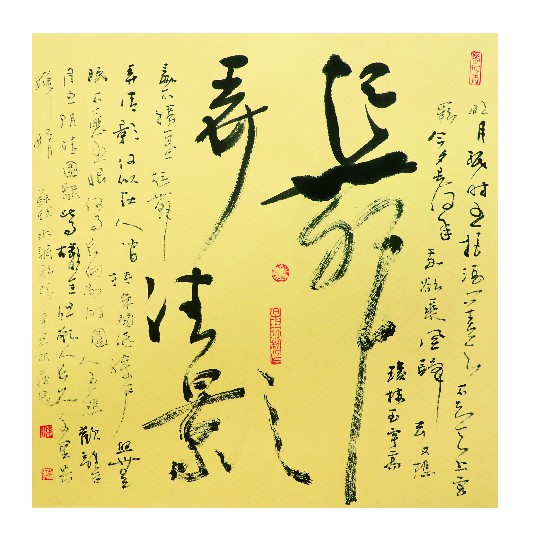 明月幾时有把酒问青天不知天上宫
阙今夕是何年我欲乘风归去又恐
琼楼玉宇高
起舞
弄清影
处不胜寒起舞
弄清影何似在人间转朱阁低绮户照无
眠不应有恨何事长向别时圆人有悲歡離合
月有阴晴圆缺此事古难全但愿人长久千里共
婵娟
苏轼水调歌头